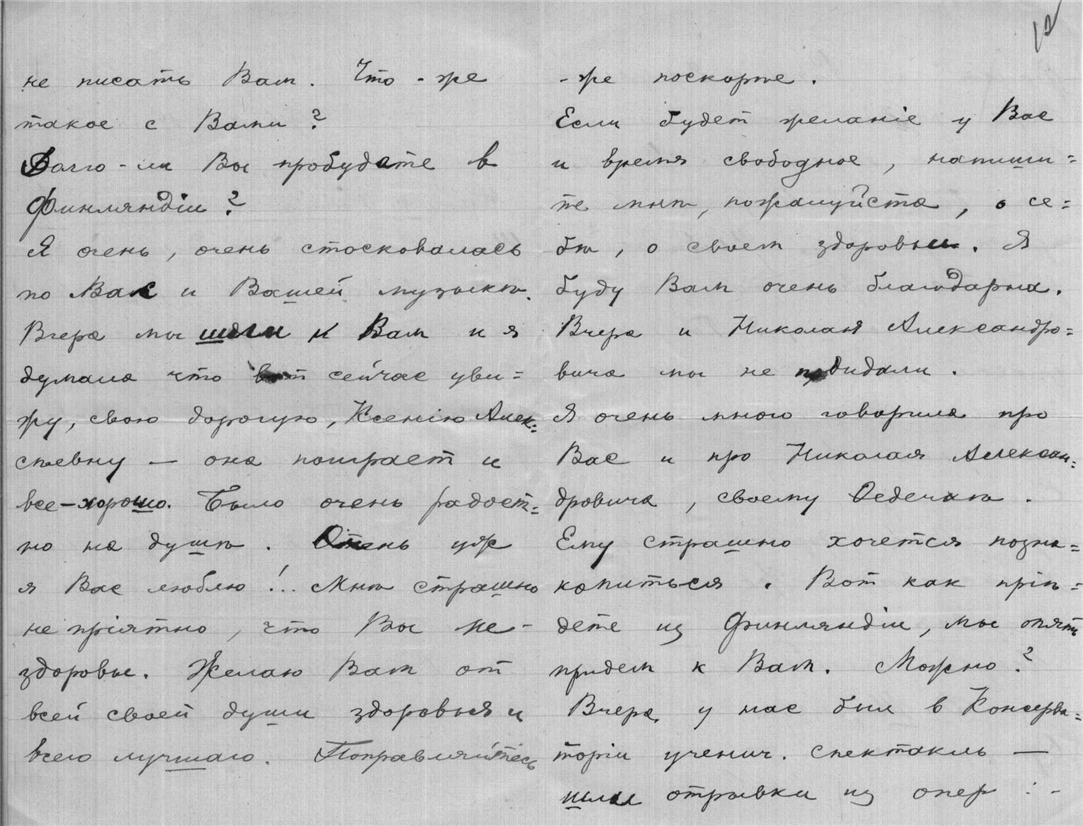 не писать Вам. Что-же
такое с Вами?
Долго-ли Вы пробудете в
Финляндіи?
Я очень, очень стосковалась
по Вас и Вашей музыкѣ.
Вчера мы шли к Вам и я
думала что вот сейчас уви=
жу, свою дорогую, Ксенію Алек=
сѣевну — она поиграет и
все-хорошо. Было очень радост=
но на душѣ. Очень уж
я Вас люблю!.. Мнѣ страшно
непріятно, что Вы не-
здоровы. Желаю Вам от
всей своей души здоровья и
всего лучшаго. Поправляйтесь
12
-же поскорѣе.
Если будет желаніе у Вас
и время свободное, напиши=
те мнѣ, пожалуйста, о се=
бѣ, о своем здоровьи. Я
буду Вам очень благодарна.
Вчера и Николая Александро=
вича мы не видали.
Я очень много говорила про
Вас и про Николая Алексан=
дровича, своему Дедечкѣ.
Ему страшно хочется позна=
комиться. Вот как пріѣ=
дете из Финляндіи, мы опять
придем к Вам. Можно?
Вчера у нас был в Консерва=
торіи ученич. спектакль —
шли отрывки из опер:-